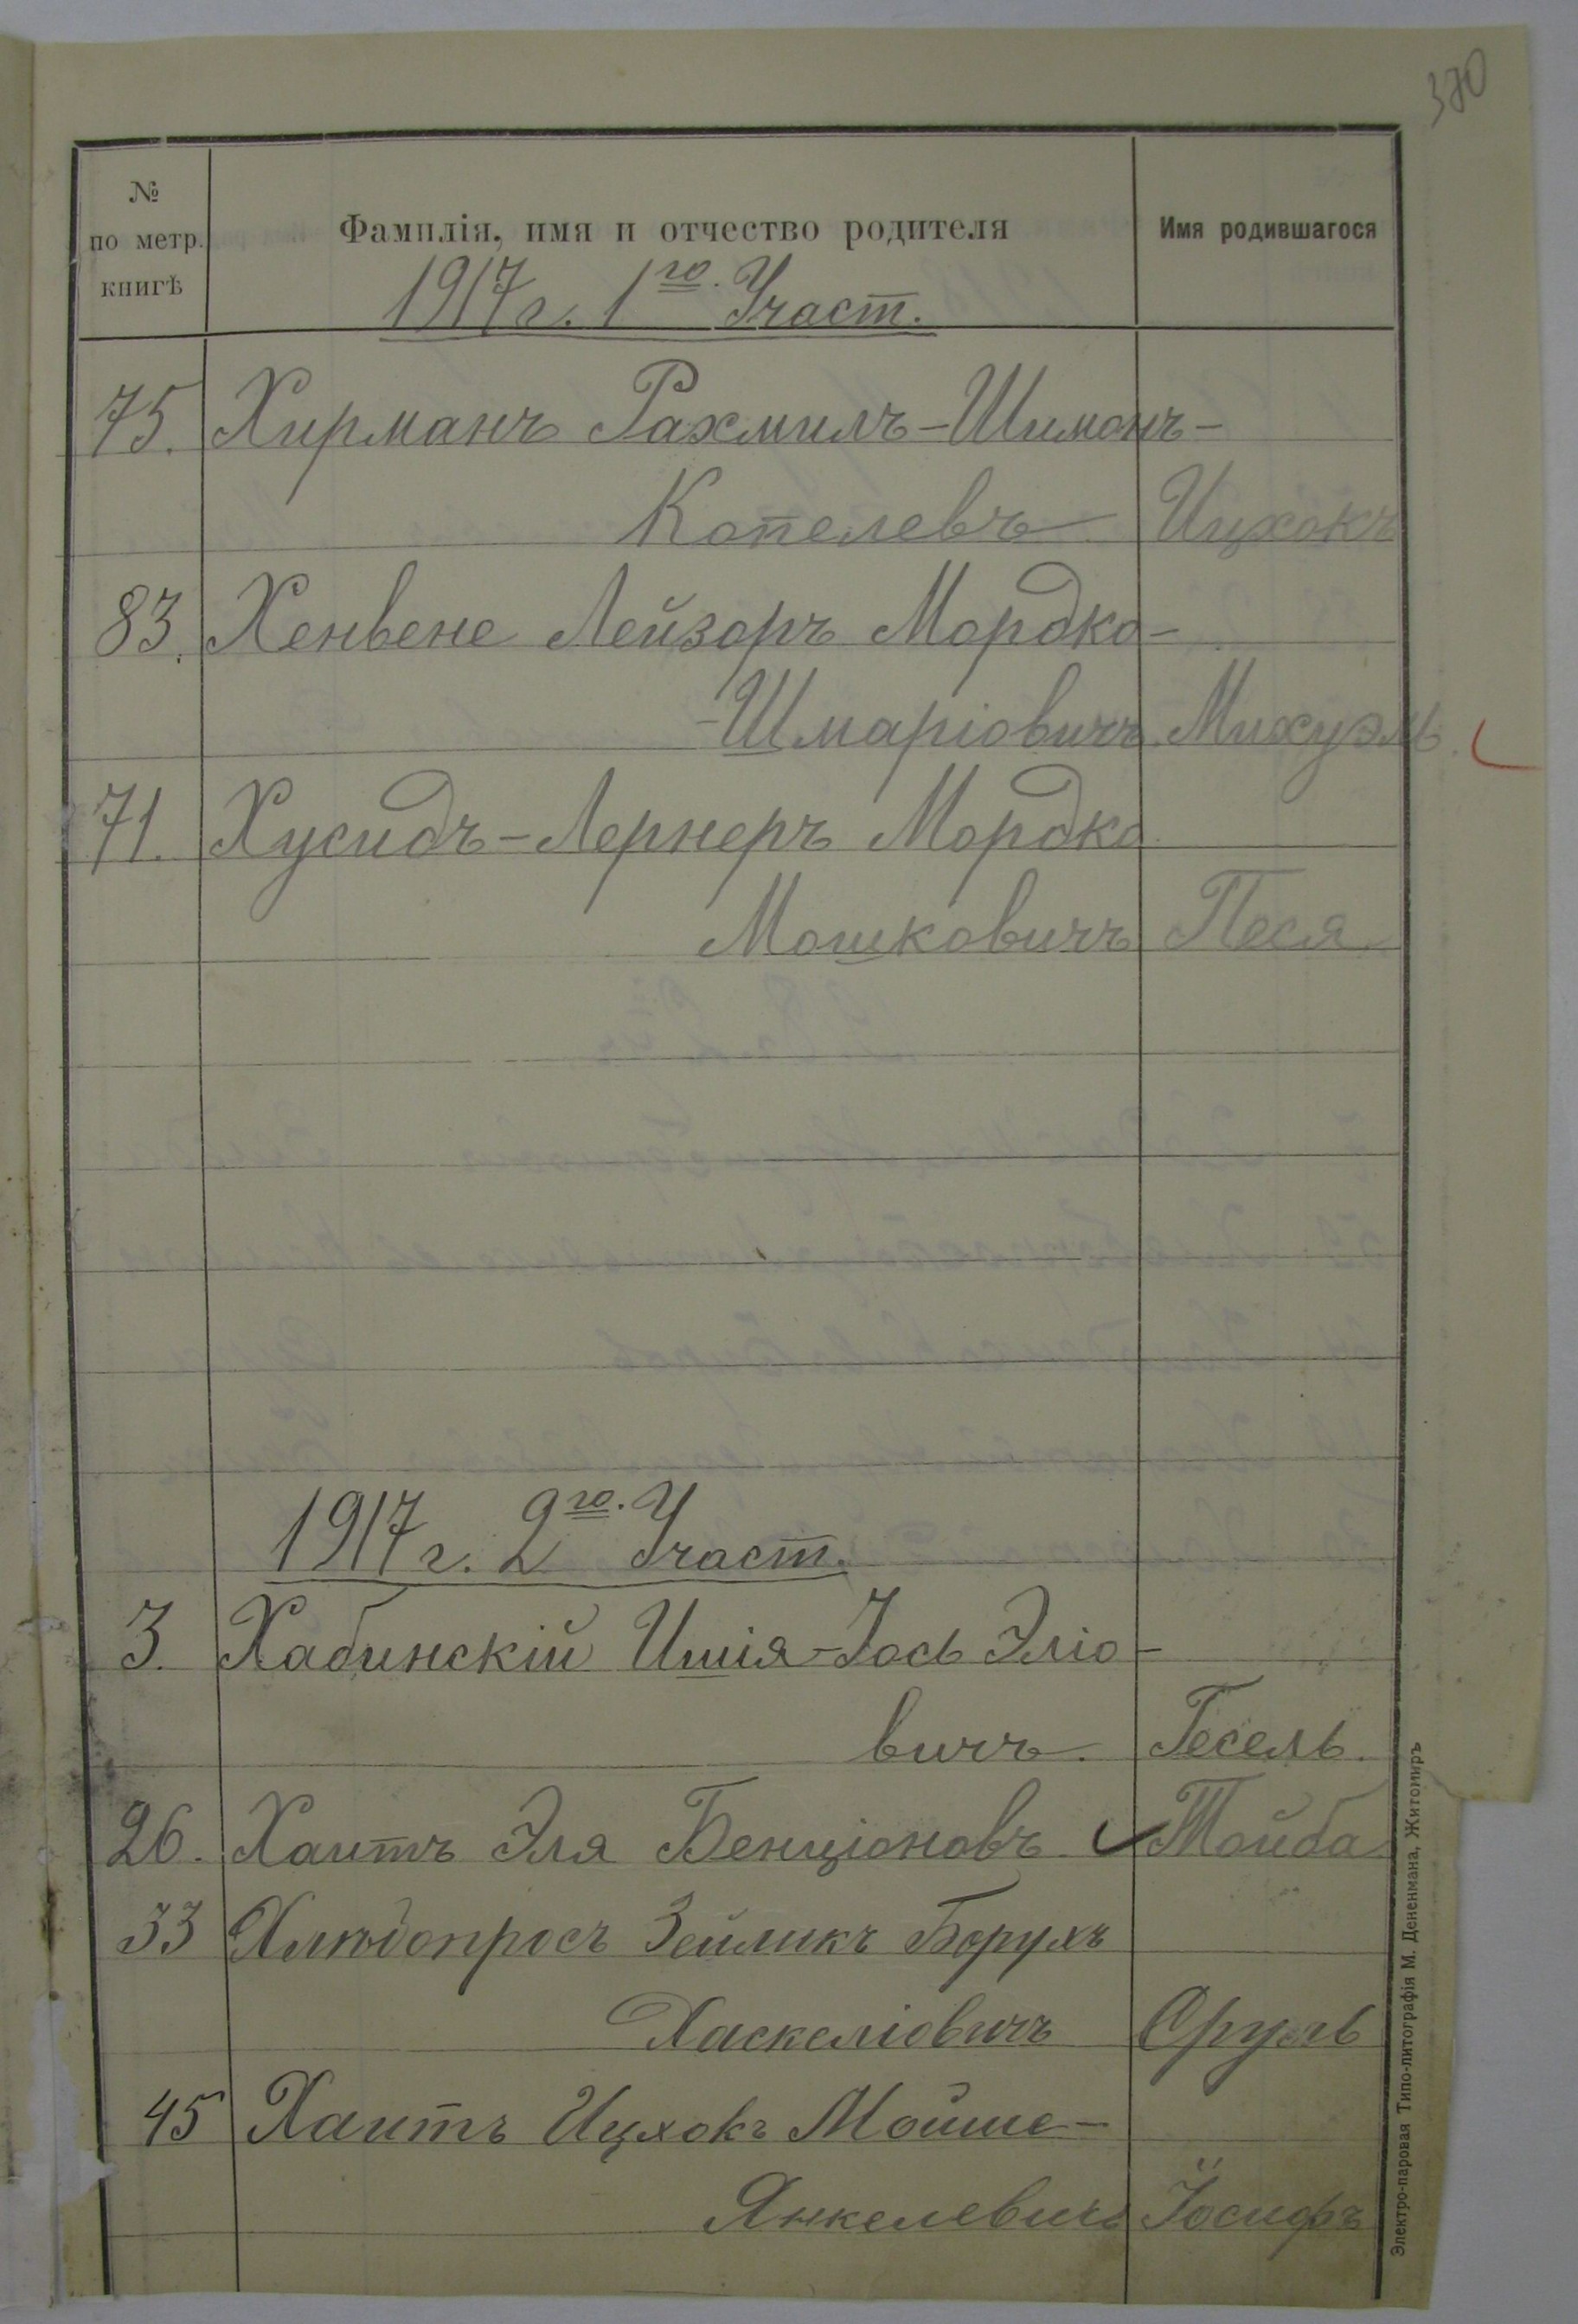 370
№ по метр. книгѣ
Фамилія, имя и отчество родителя
Имя родившагося
1917 г. 1го. Участ.
75. Хирманъ Рахмилъ-Шимонъ-
Копелевъ Ицхокъ
83. Хенвене Лейзоръ Мордко-
-Шмаріовичъ. Михуэль.
71. Хусидъ-Лернеръ Мордко
Мошковичъ Песя
1917 г. 2го. Участ.
3. Хабинскій Ишія-Іось Эліо-
вичъ. Гесель.
26. Хаитъ Эля Бенціоновъ. Тойба
33 Хлѣбопросъ Зейликъ Борухъ
Хаскеліовичъ Сруль
45 Хаитъ Ицхокъ Мойше-
Янкелевичъ Іосифъ
Электро-паровая Типо-литографія М. Дененмана, Житомиръ